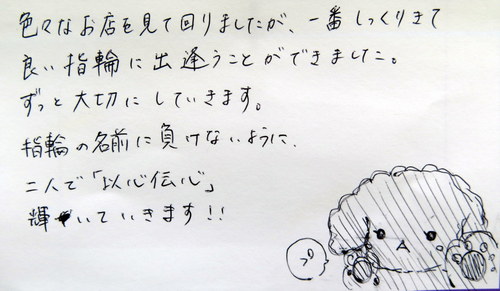 色々なお店を見て回りましたが、一番しっくりきて
良い指輪に出逢うことができました。
ずっと大切にしていきます。
指輪の名前に負けないように、
二人で「以心伝心」
輝いていきます!!